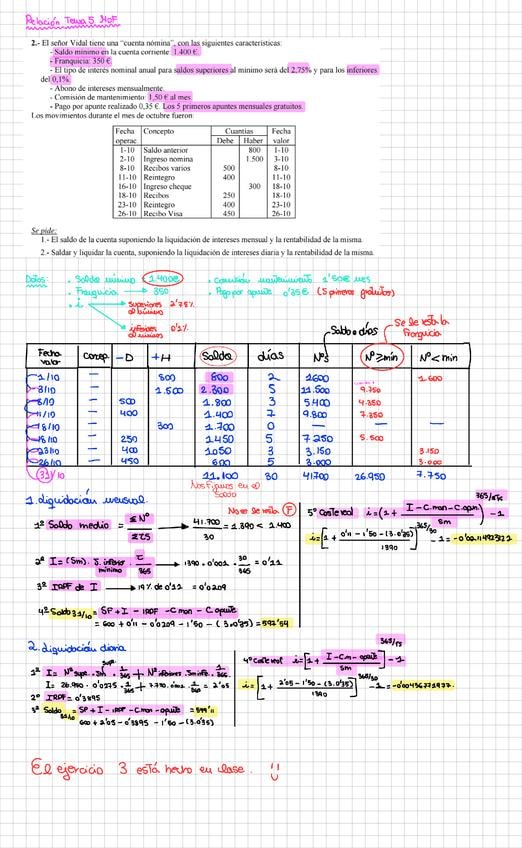 Relación Tema 5 MOF
2.- El señor Vidal tiene una "cuenta nómina", con las siguientes características:
- Saldo mínimo en la cuenta corriente: 1.400 €.
- Franquicia: 350 €.
- El tipo de interés nominal anual para saldos superiores al mínimo será del 2,75% y para los inferiores
del 0,1%.
- Abono de intereses mensualmente.
- Comisión de mantenimiento: 1,50 € al mes.
- Pago por apunte realizado 0,35 €. Los 5 primeros apuntes mensuales gratuitos.
Los movimientos durante el mes de octubre fueron:
Fecha operac. Concepto Cuantías Debe Haber Fecha valor
1-10 Saldo anterior 800 1-10
2-10 Ingreso nomina 1.500 3-10
8-10 Recibos varios 500 8-10
11-10 Reintegro 400 11-10
16-10 Ingreso cheque 300 18-10
18-10 Recibos 250 18-10
23-10 Reintegro 400 23-10
26-10 Recibo Visa 450 26-10
Se pide:
1.- El saldo de la cuenta suponiendo la liquidación de intereses mensual y la rentabilidad de la misma.
2.- Saldar y liquidar la cuenta, suponiendo la liquidación de intereses diaria y la rentabilidad de la misma.
Datos: · Saldo mínimo 1.400€ · Comisión mantenimiento 1'50€ mes
· Franquicia → 350 · Pago por apunte 0'35€ (5 primeros gratuitos)
· i → superiores al mínimo 2'75%
inferiores al mínimo 0'1%
Saldo x días
Se le resta la Franquicia
Fecha valor Concep. -D +H Saldo días NºS Nº≥min Nº<min
1/10 — 800 800 2 1600 1.600
3/10 — 1.500 2.300 5 11.500 9.750
8/10 — 500 1.800 3 5.400 4.350
11/10 — 400 1.400 7 9.800 7.350
18/10 — 300 1.700 0 — — —
18/10 — 250 1450 5 7250 5.500
23/10 — 400 1.050 3 3.150 3.150
26/10 — 450 600 5 3.000 3.000
31/10 11.100 30 41.700 26.950 7.750
1. liquidación mensual.
No se le resta F
1º Saldo medio = ΣNº / Σdías → 41.700 / 30 = 1.390 < 1.400
2º I = (Sm). → 1390 · 0'001 · 30/365 = 0'11
3º IRPF de I → 19% de 0'11 = 0'0209
4º Saldo 31/10 = SP + I - IRPF - C.man - C. apunte
= 600 + 0'11 - 0'0209 - 1'50 - (3.0'35) = 597'54
5º Coste real
2. liquidación diaria
2º IRPF = 0'3895
3º Saldo 31/10 = SP + I - IRPF - C.man - apunte
600 + 2'05 - 0'3895 - 1'50 - (3.0'35)
4º Coste real
El ejercicio 3 está hecho en clase. !!